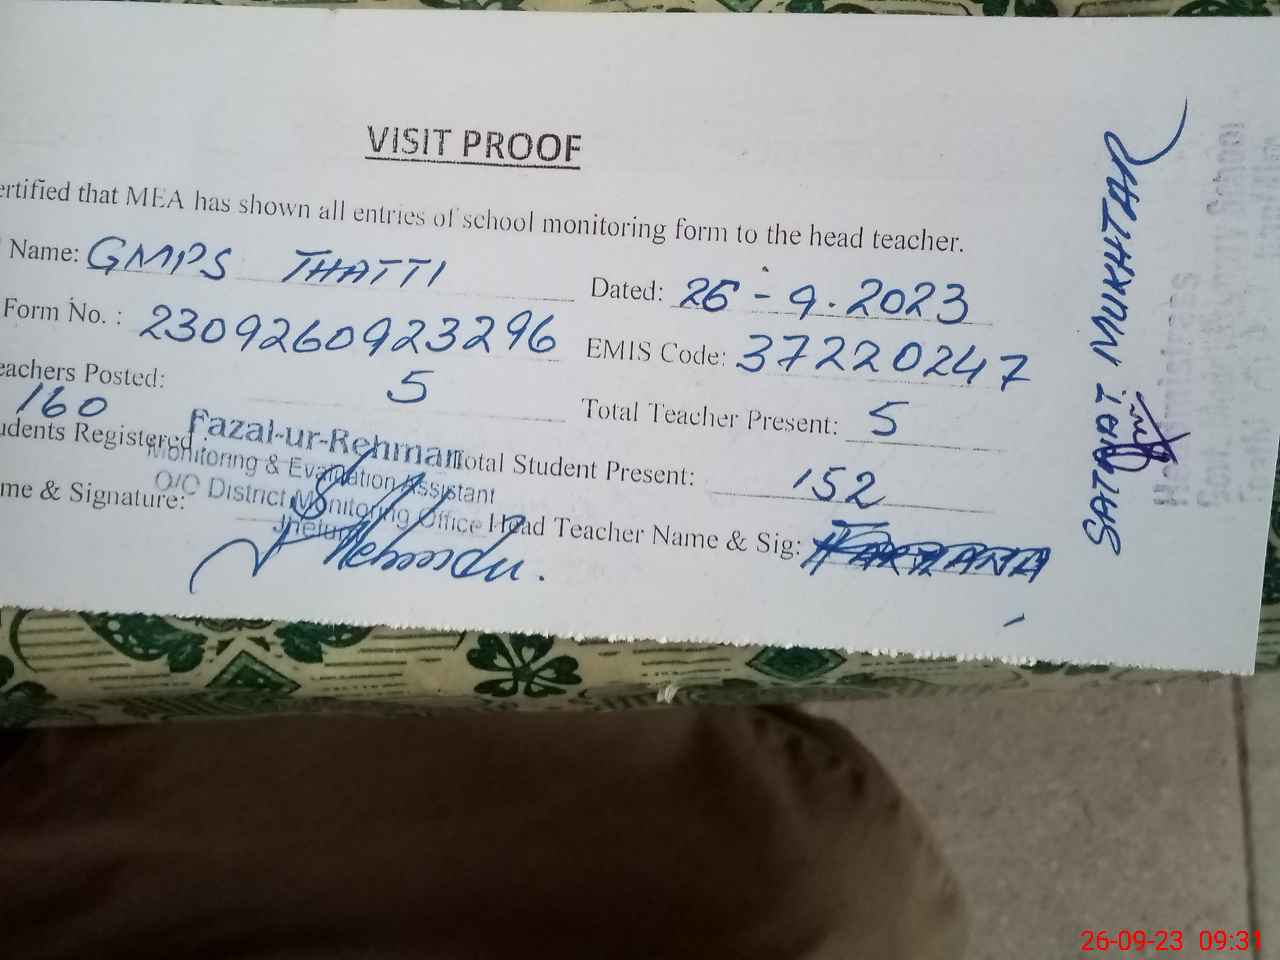 VISIT PROOF
ertified that MEA has shown all entries of school monitoring form to the head teacher.
Name: GMPS THATTI Dated: 26-9-2023
Form No. : 2309260923296 EMIS Code: 37220247
eachers Posted: 5 Total Teacher Present: 5
160
udents Registered : Total Student Present: 152
Fazal-ur-Rehman
Monitoring & Evaluation Assistant
O/O District Monitoring Office
Jhelum
me & Signature: Head Teacher Name & Sig:
SATWAT MUKHTAR
Headmistress
26-09-23 09:31